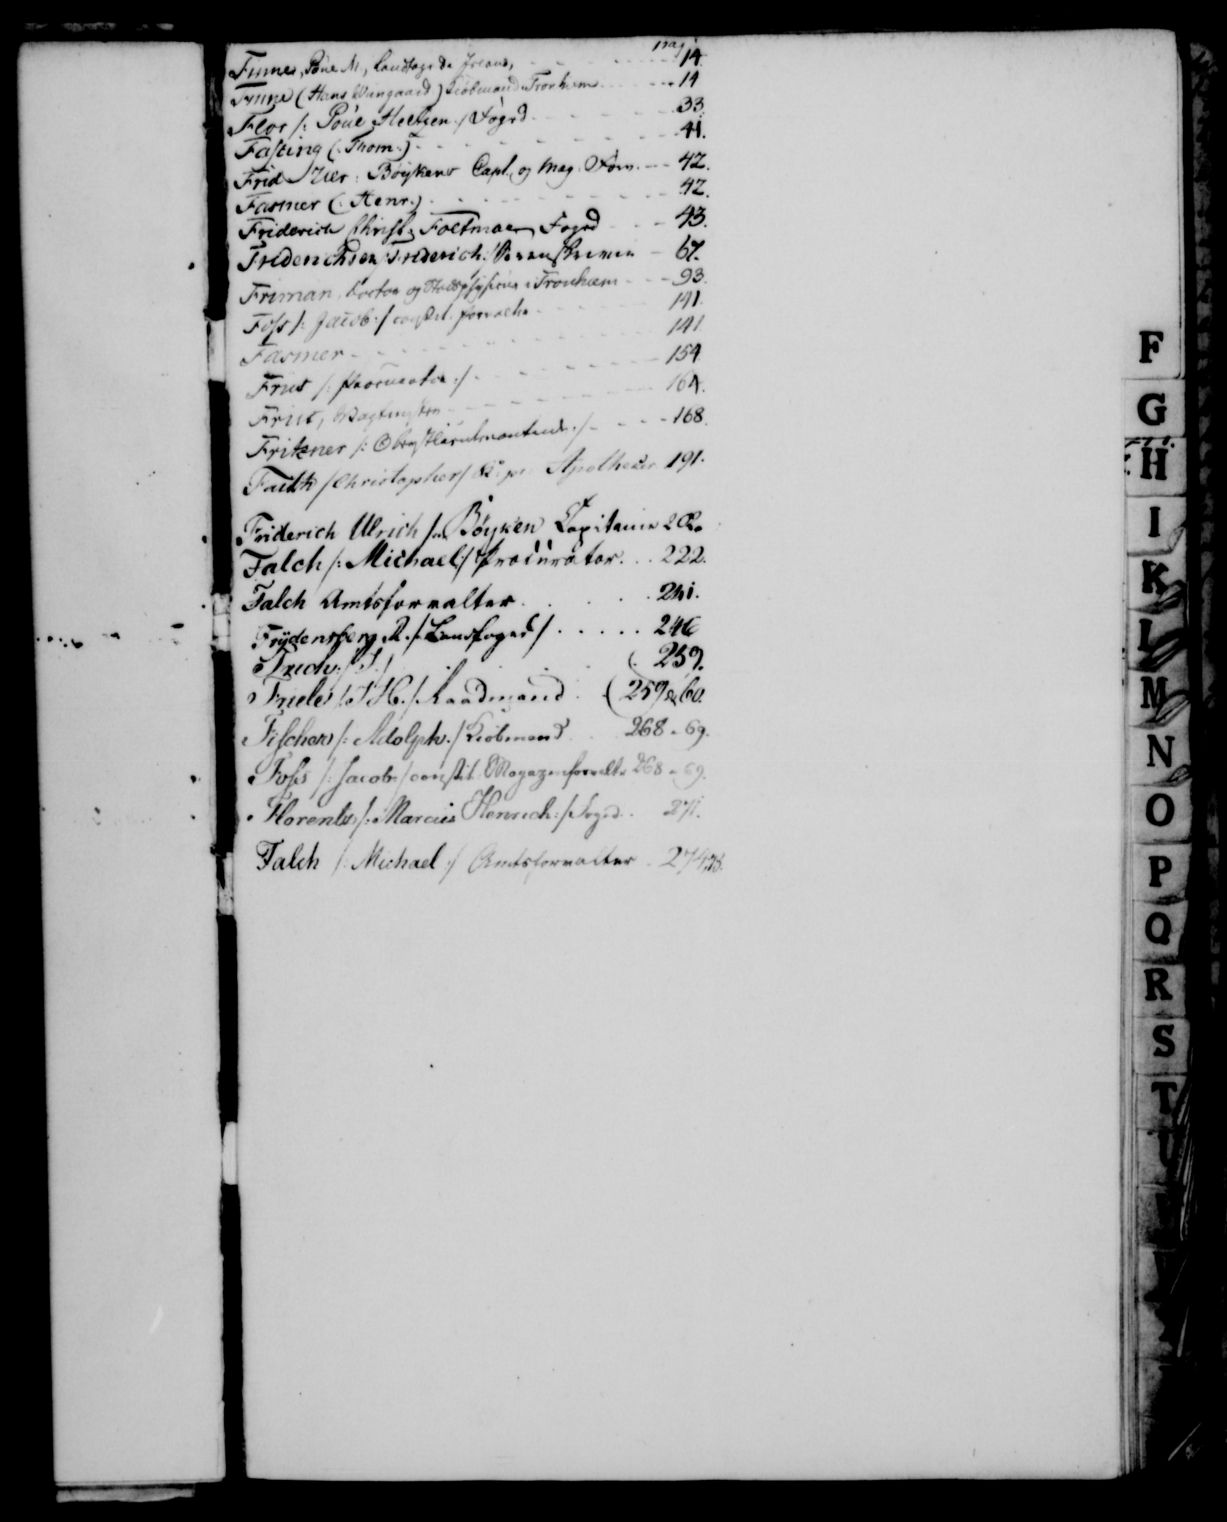 pag
Finne, Poul M, Landfoged i Island, 14.
Finne (Hans Wingaard) Kiøbmand i Tronhiem 14
Flor /: Poúl Heltzen :/ Foged 33.
Fasting (: Thom:) 41.
Frid. Ulr: Böÿken Capt. og Mag. Forv. 42.
Fasmer (: Henr:) 42.
Friderich Christ: Foltmar, Foged 43.
Friderichsen, Friderich 67.
Friman, Doctor og i Tronhiem 93.
Foss /: Jacob :/ const. forvalter 141.
Fasmer 141.
Friis /: Procurator :/ 154.
Friis, 164.
Fritzner /: Oberstlieutenantinde :/ 168.
Faith /Christopher/ Apotheker 191.
Friderich Ulrich /: Böÿken Capitain
Falch /: Michael :/ Procúrator 222.
Falch Amtsforvalter 241.
Frÿdensberg R. /: Landfoged / 246
259.
Friele /: H :/ Raadmand (259 & 60.
Fischer /: Adolph :/ Kiöbmand 268 - 69.
Foss /: Jacob :/ constit. Magazinforvalter 268 - 69.
Florents /: Marcus Henrich :/ Foged 271.
Falch /: Michael :/ Amtsforvalter 274,75.
F
G
H
I
K
L
M
N
O
P
Q
R
S
T
U